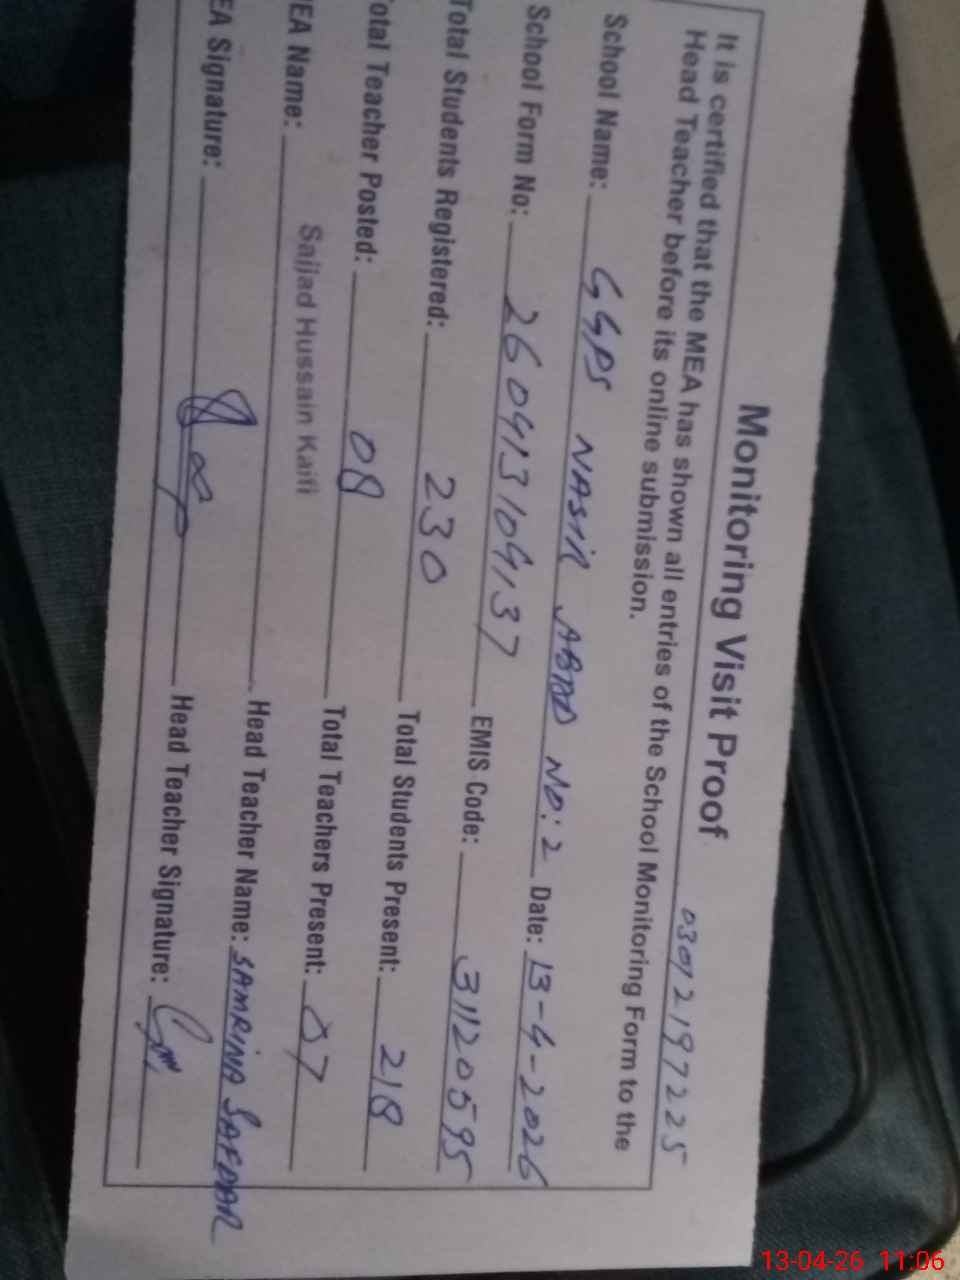 Monitoring Visit Proof
03012197225
It is certified that the MEA has shown all entries of the School Monitoring Form to the
Head Teacher before its online submission.
School Name: GGPS NASIR ABAD NO: 2 Date: 13-4-2026
School Form No: 260413109137 EMIS Code: 31120595
Total Students Registered: 230 Total Students Present: 218
Total Teacher Posted: 08 Total Teachers Present: 07
MEA Name: Sajjad Hussain Kaifi Head Teacher Name: SAMRINA SAFDAR
MEA Signature: Head Teacher Signature:
13-04-26 11:06